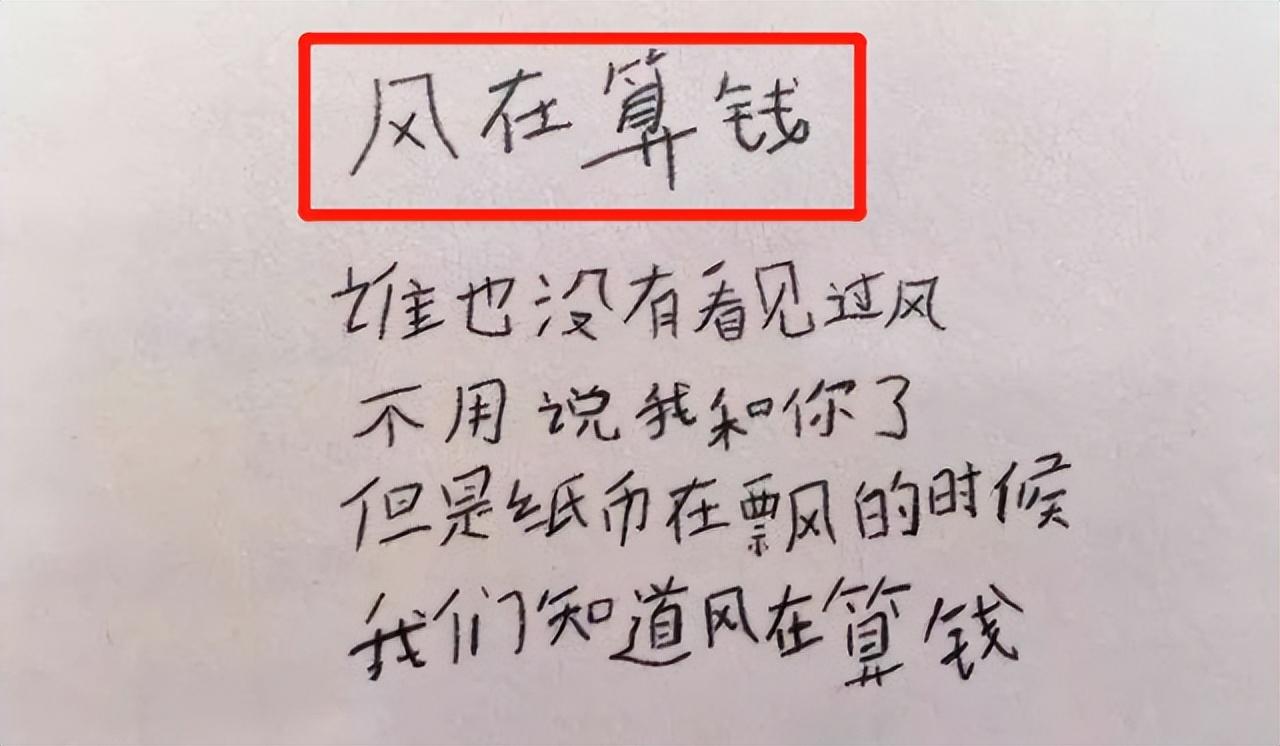 风在算钱
谁也没有看见过风
不用说我和你了
但是纸币在飘的时候
我们知道风在算钱